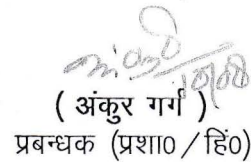 ( अंकुर गर्ग )
प्रबन्धक (प्रशा0 / हिं0)